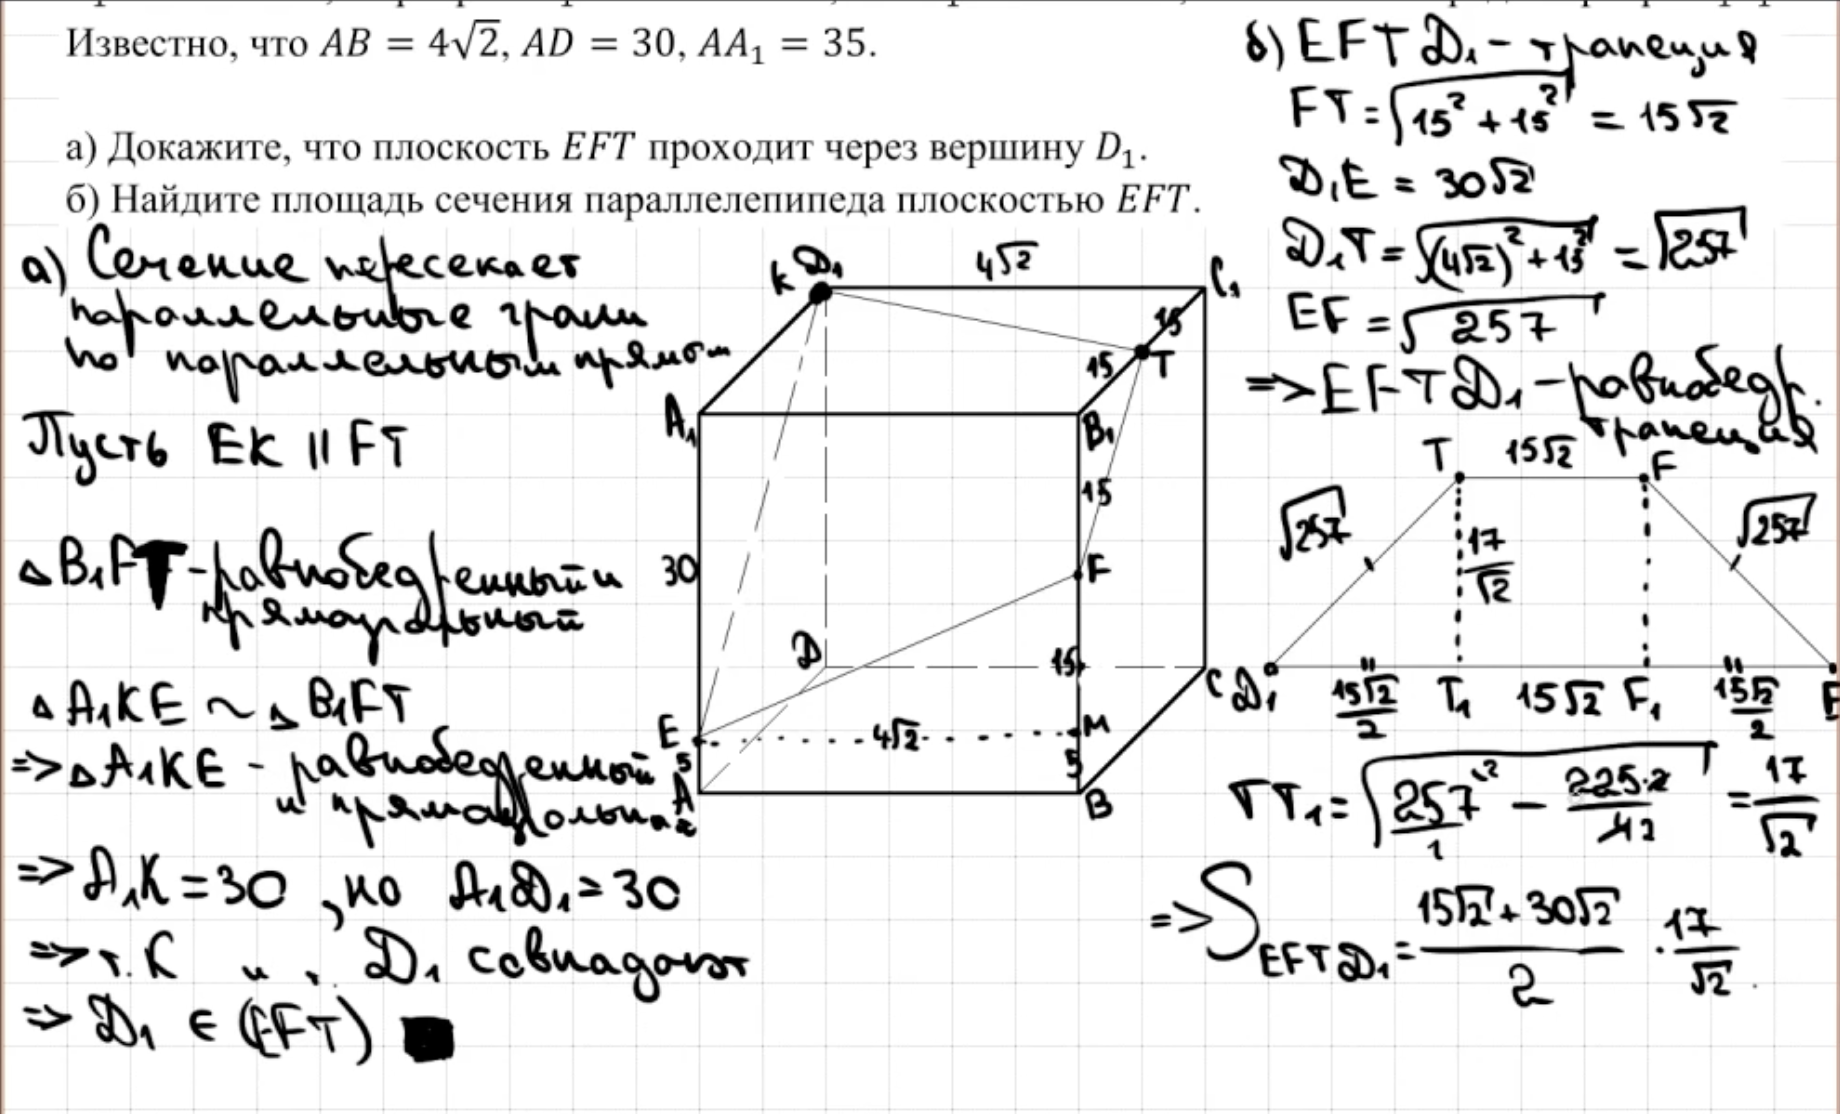 Известно, что AB = 4√2, AD = 30, AA₁ = 35.
а) Докажите, что плоскость EFT проходит через вершину D₁.
б) Найдите площадь сечения параллелепипеда плоскостью EFT.
а) Сечение пересекает
параллельные грани
по параллельным прямым
Пусть EK || FT
△B₁FT - равнобедренный и
прямоугольный
△A₁KE ~ △B₁FT
=> △A₁KE - равнобедренный
и прямоугольный
=> A₁K = 30, но A₁D₁ = 30
=> т. K и т. D₁ совпадают
=> D₁ ∈ (EFT) ■
K D₁ 4√2 C₁
15
15 T
A₁ B₁
15
30 F
D 15 C
E 4√2 M
5 5
A B
б) EFTD₁ - трапеция
FT = √(15² + 15²) = 15√2
D₁E = 30√2
D₁T = √((4√2)² + 15²) = √257
EF = √257
=> EFTD₁ - равнобедр.
трапеция
T 15√2 F
√257 17/√2 √257
D₁ 15√2/2 T₁ 15√2 F₁ 15√2/2 E
TT₁ = √(257/1 ^\2 - 225·2/42) = 17/√2
=> S EFTD₁ = (15√2 + 30√2)/2 · 17/√2